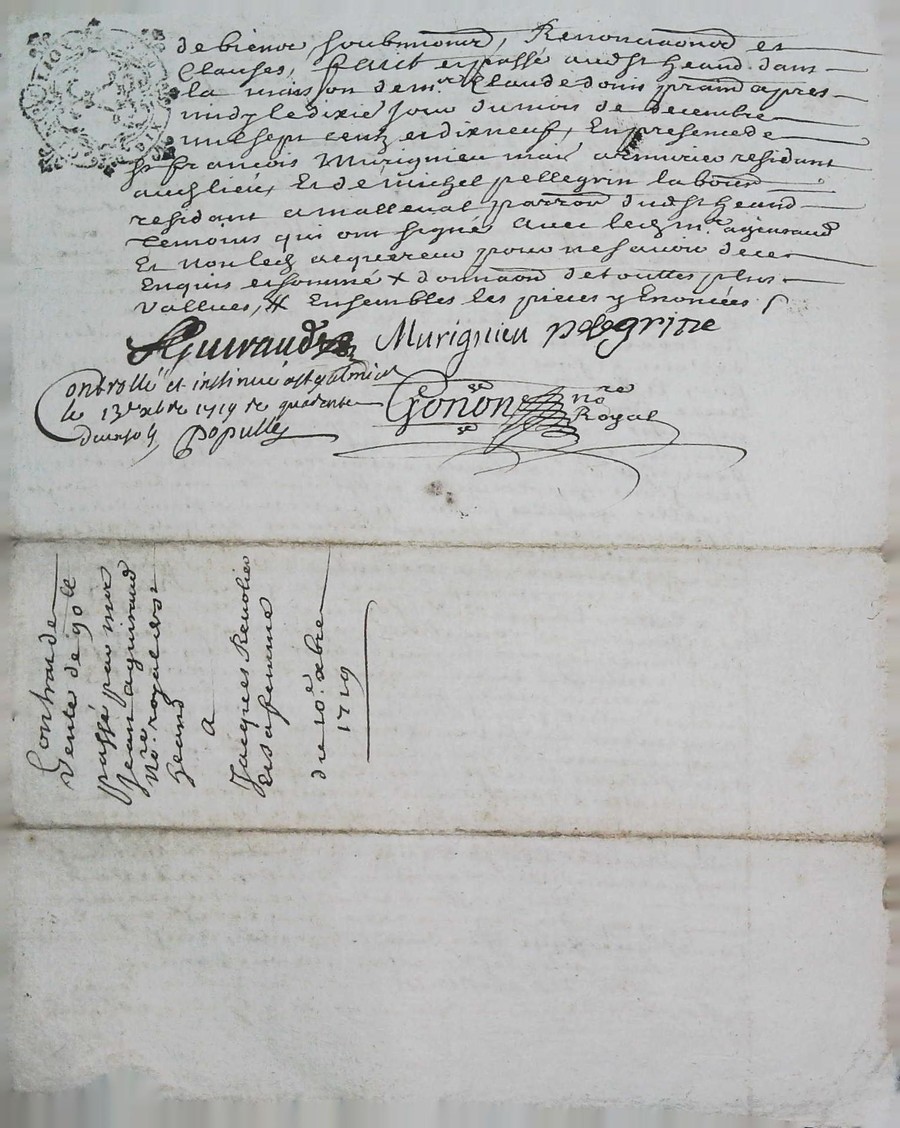 de biens soubmions, Renonciaons et
Clauses, faict et passé audt St heand dans
la maison de mr Claude donis praind apres
midy le dixie jour du mois de decembre
mil sept centz et dixneuf, En presence de
sr francois Murignieu mai armurier residant
audt lieu, Et de michel pellegrin labour
residant a malleval parroi dudt St heand
Temoins qui ont signés avec led mr aguiraud
Et non led acquereur pour ne savoir de ce
Enquis et sommé + donnaon de touttes plus
vallues, # Ensembles les pieces y Enoncées
Aguiraud Murignieu pelegrine
Controllé et insinué a St galmier
le 13e xbre 1719 re quarente
Populle
Gonon no re
Royal
Contrat de
Vente de 90 ll
passé par mre
Jean aguiraud
no re royal a St
heand
a
Jacques Revolier
et sa femme
du 10e xbre
1719